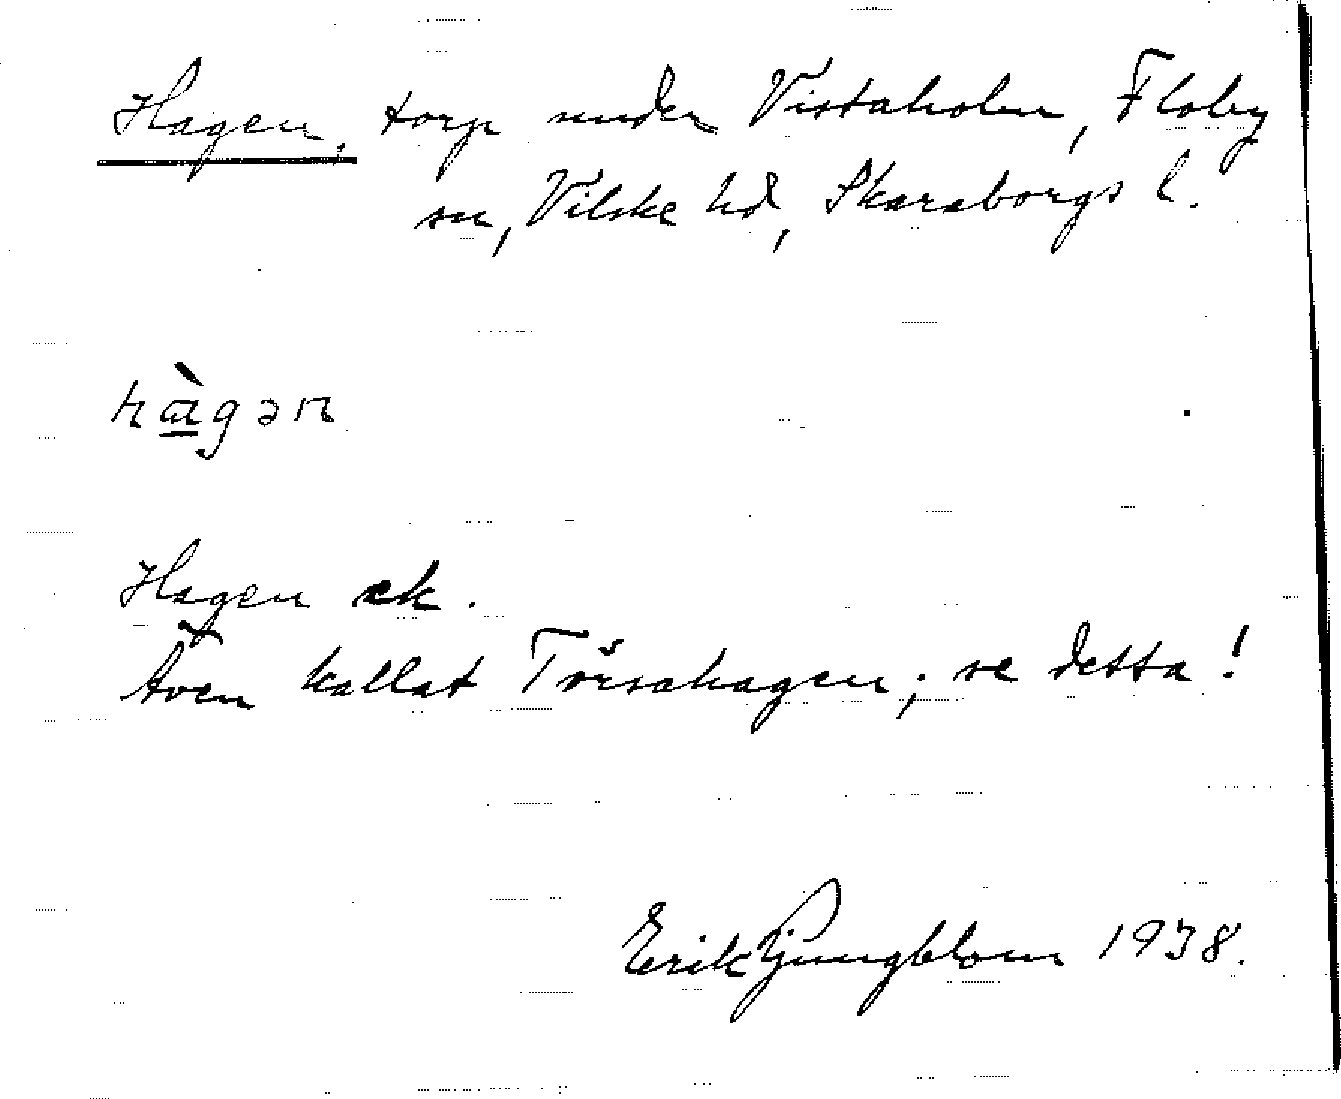 Hagen, torp under Vistaholm, Floby
sn, Vilske hd, Skaraborgs l.
hàgən
Hagen ek.
Även kallat Torsahagen; se detta!
Erik Ljungblom 1938.